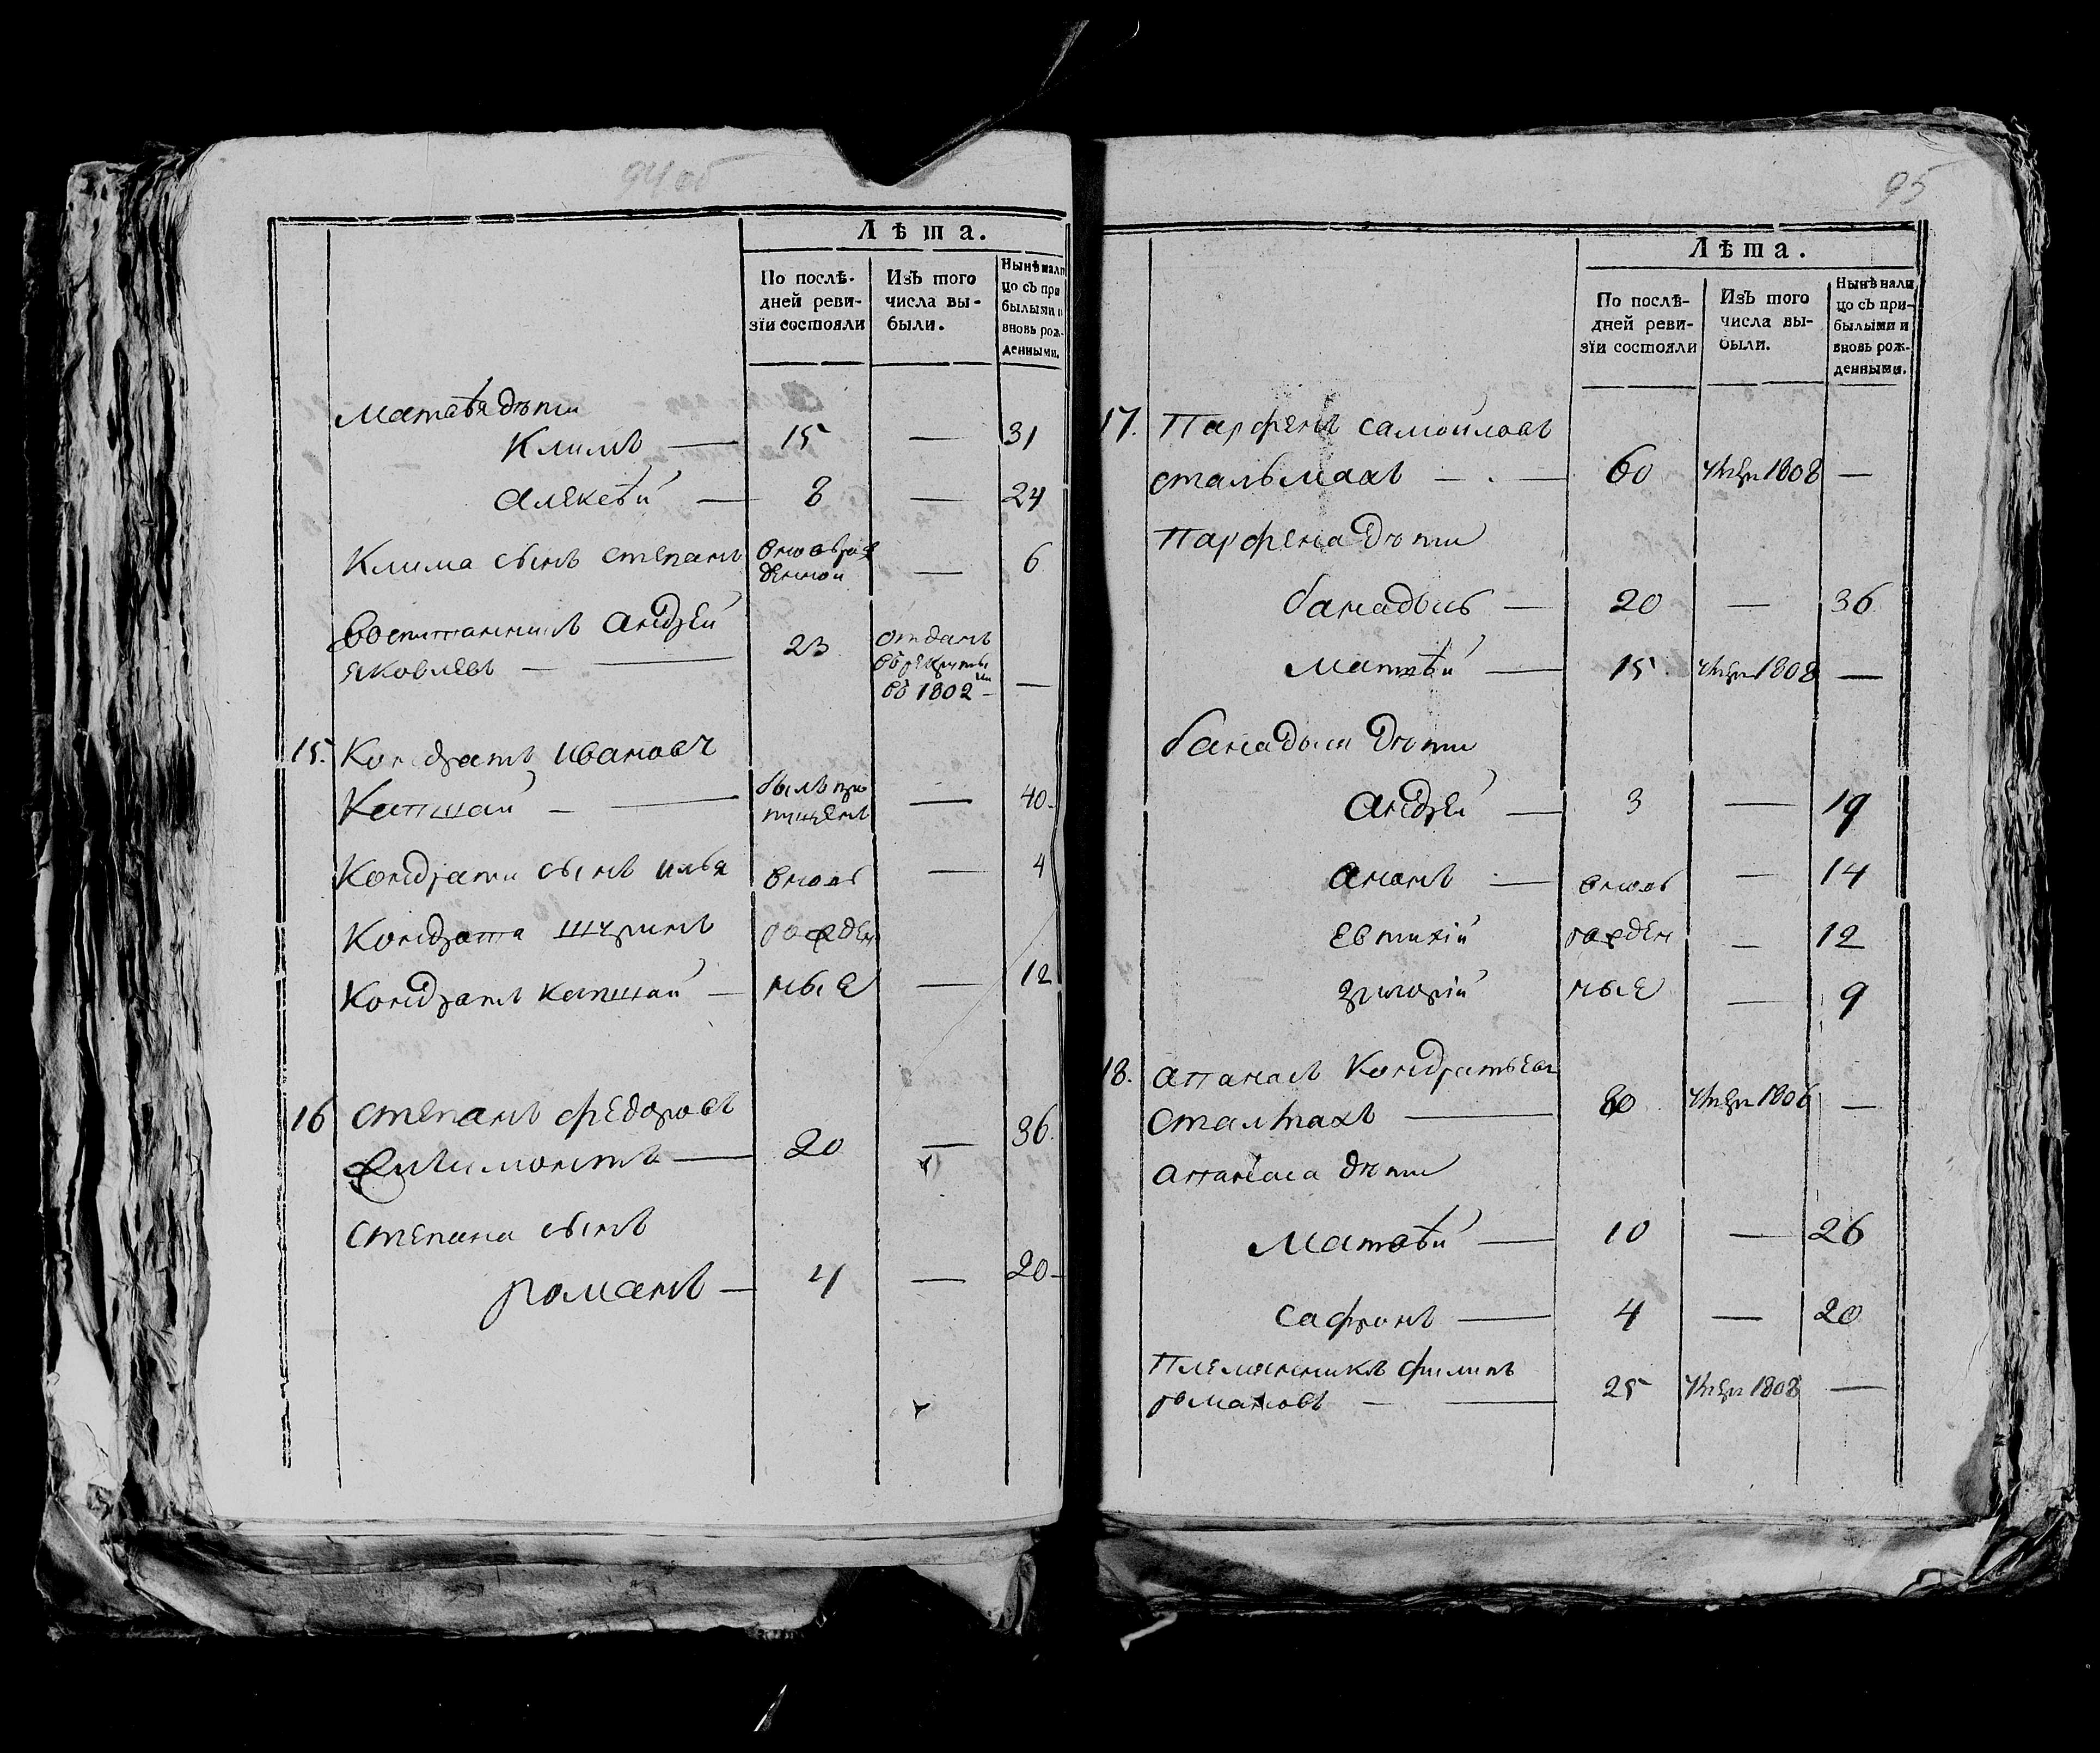 94 об
Лѣта.
По послѣ-
дней реви-
зїи состояли
Изъ того
числа вы-
были.
Нынѣ нали
цо съ при
былыми и
вновь рож-
денными.
Матвѣя дѣти
Климъ — 15 — 31
Алексѣй — 8 — 24
Клима сынъ Степанъ вновьрож
денной — 6
Воспитанникъ Андрей
Яковлевъ — 23 отданъ
въ рекруты
въ 1802 — —
15. Кондратъ Ивановъ
Капшай — былъ про
пущенъ — 40
Кондрата сынъ Илья вновь — 4
Кондрата Шуринъ рожден
Кондратъ Капшай — ные — 12
16 Степанъ Федоровъ
20 — 36
Степана сынъ
Романъ — 4 — 20
95
Лѣта.
По послѣ-
дней реви-
зїи состояли
Изъ того
числа вы-
были.
Нынѣ нали
цо съ при-
былыми и
вновь рож-
денными.
17. Парфенъ Самойловъ
Стальмахъ — 60 умре 1808 —
Парфена дѣти
Банадысь — 20 — 36
Матвѣй — 15 умре 1808 —
Банадыся дѣти
Андрей — 3 — 19
Ананъ — вновь — 14
Евтихій рожден — 12
Григорій ные — 9
18. Апанасъ Кондратьевъ
Сталмахъ — 60 умре 1806 —
Апанаса дѣти
Матвѣй — 10 — 26
Сафронъ — 4 — 20
Племянникъ Филипъ
Романовъ — 25 умре 1808 —